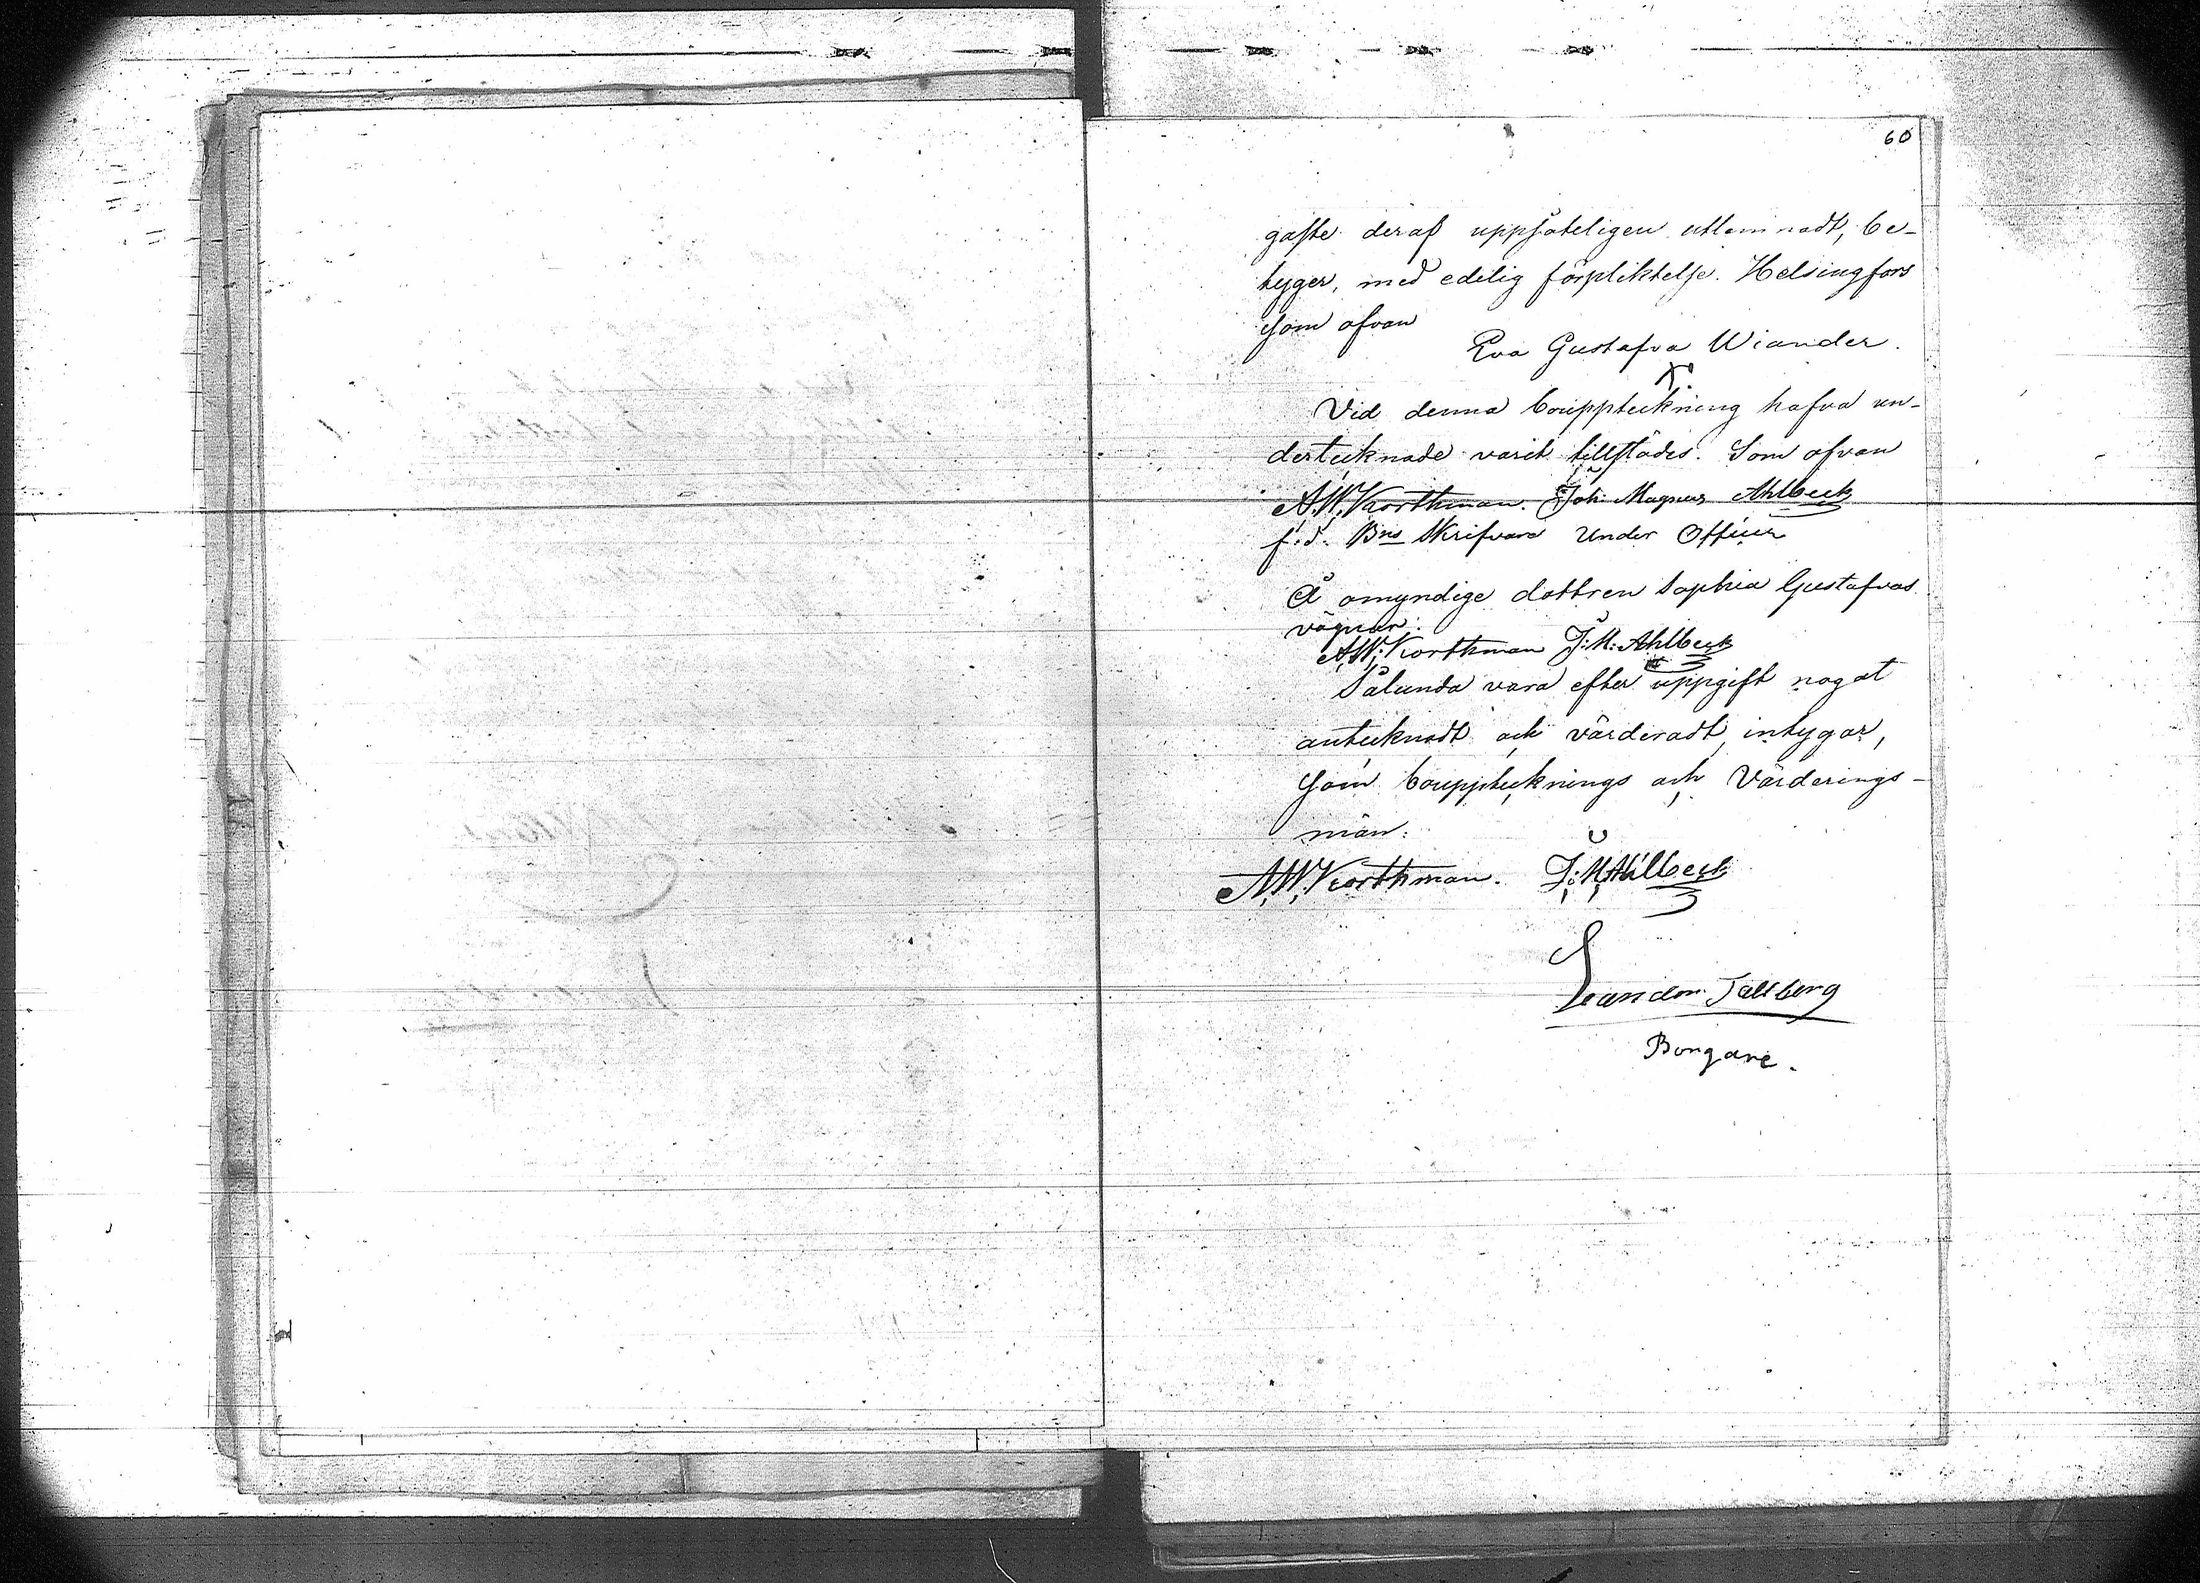 60
gaste deraf uppsåteligen utlemnadt, be-
tyger, med edelig förpliktelse. Helsingfors
som ofvan
Eva Gustafva Wiander.
X
Vid denna bouppteckning hafva un-
dertecknade varit tillstädes. Som ofvan
A.W. Korthman. Joh: Magnus Ahlbeck
f.d. Bns Skrifvare Under Officer
Å omyndige dottren Sophia Gustafvas
vägnar:
A.W. Korthman J: M: Ahlbeck
Sålunda vara efter uppgift nogat
antecknadt och värderadt, intygar,
som bouppteknings och Värderings-
män:
A.W. Korthman. J: M Ahlbeck
Leander Tallberg
Borgare.